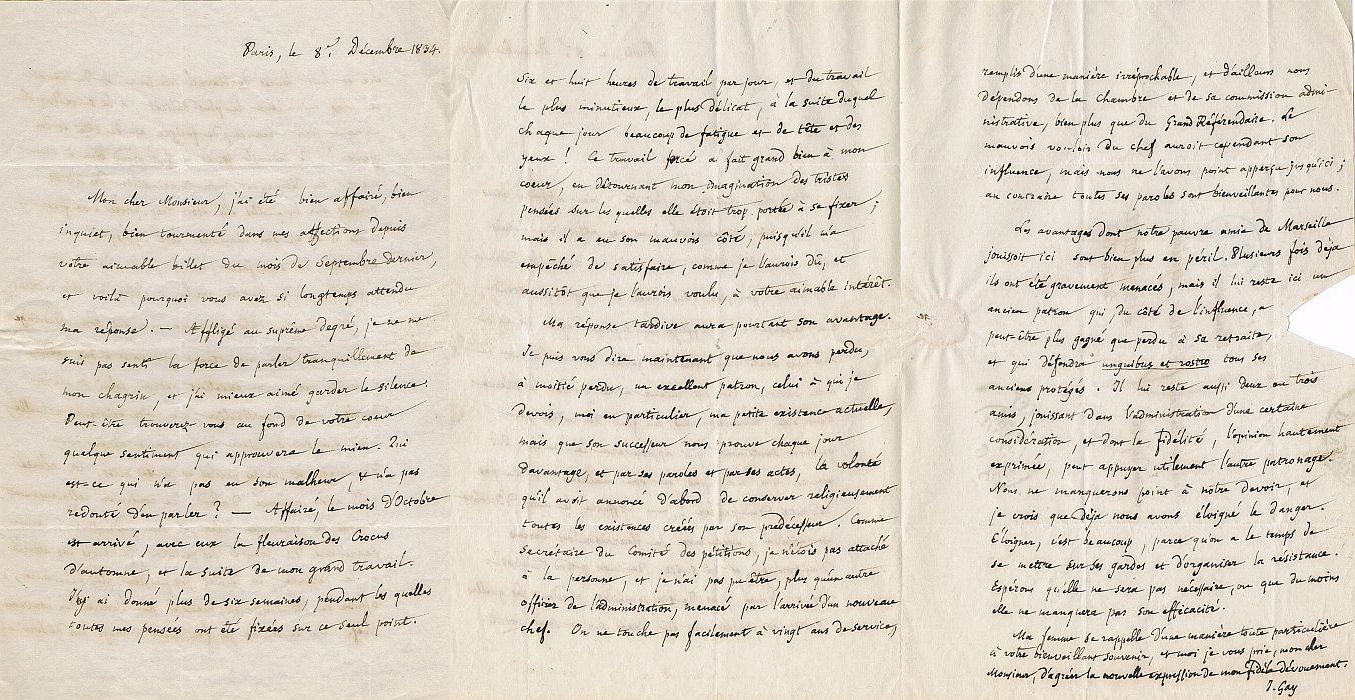 Paris, le 8.r Décembre 1834.
Mon cher Monsieur, j'ai été bien affairé, bien
inquiet, bien tourmenté dans mes affections depuis
votre aimable billet du mois de Septembre dernier,
et voilà pourquoi vous avez si longtemps attendu
ma réponse. — Affligé au suprême degré, je ne me
suis pas senti la force de parler tranquillement de
mon chagrin, et j'ai mieux aimé garder le silence.
Peut-être trouverez vous au fond de votre coeur
quelque sentiment qui approuvera le mien. Qui
est-ce qui n'a pas eu son malheur, et n'a pas
redouté d'en parler ? — Affairé, le mois d'Octobre
est arrivé, avec eux la fleuraison des Crocus
d'automne, et la suite de mon grand travail.
J'y ai donné plus de six semaines, pendant les quelles
toutes mes pensées ont été fixées sur ce seul point.
Six et huit heures de travail par jour, et du travail
le plus minutieux, le plus délicat, à la suite duquel
chaque jour beaucoup de fatigue et de tête et des
yeux ! Ce travail forcé a fait grand bien à mon
coeur, en détournant mon imagination des tristes
pensées sur les quelles elle étoit trop portée à se fixer ;
mais il a eu son mauvais côté, puisqu'il m'a
empêché de satisfaire, comme je l'aurois dû, et
aussitôt que je l'aurois voulu, à votre aimable intérêt.
Ma réponse tardive aura pourtant son avantage.
Je puis vous dire maintenant que nous avons perdu,
à moitié perdu, un excellent patron, celui à qui je
devois, moi en particulier, ma petite existence actuelle,
mais que son successeur nous prouve chaque jour
davantage, et par ses paroles et par ses actes, la volonté
qu'il avoit annoncé d'abord de conserver religieusement
toutes les existences créées par son prédécesseur. Comme
Secrétaire du Comité des pétitions, je n'étois pas attaché
à la personne, et je n'ai pas pu être, plus qu'un autre
officier de l'administration, menacé par l'arrivée d'un nouveau
chef. On ne touche pas facilement à vingt ans de service,
remplis d'une manière irréprochable, et d'ailleurs nous
dépendons de la chambre et de sa commission admi-
nistrative, bien plus que du Grand Référendaire. Le
mauvois vouloir du chef auroit cependant son
influence, mais nous ne l'avons point apperçu jusqu'ici ;
au contraire toutes ses paroles sont bienveillantes pour nous.
Les avantages dont notre pauvre amie de Marseille
jouissoit ici sont bien plus en péril. Plusieurs fois déja
ils ont été gravement menacés, mais il lui reste ici un
ancien patron qui du côté de l'influence, a
peut-être plus gagné que perdu à sa retraite,
et qui défendra unguibus et rostro tous ses
anciens protégés. Il lui reste aussi deux ou trois
amis, jouissant dans l'administration d'une certaine
considération, et dont la fidélité, l'opinion hautement
exprimée, peut appuyer utilement l'autre patronage.
Nous ne manquerons point à notre devoir, et
je crois que déja nous avons éloigné le danger.
Éloigner, c'est beaucoup, parce qu'on a le temps de
se mettre sur ses gardes et d'organiser la résistance.
Espérons qu'elle ne sera pas nécessaire, ou que du moins
elle ne manquera pas son efficacité.
Ma femme se rappelle d'une manière toute particulière
à votre bienveillant souvenir, et moi je vous prie, mon cher
Monsieur, d'agréer la nouvelle expression de mon fidèle dévouement.
J. Gay